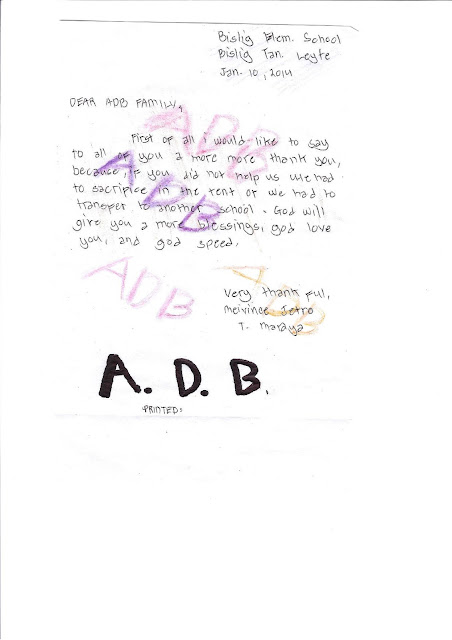 Bislig Elem. School
Bislig Tan. Leyte
Jan. 10, 2014
DEAR ADB FAMILY,
First of all i would like to say
to all of you a more more thank you,
because, if you did not help us we had
to sacripice in the tent or we had to
transper to another school. God will
give you a more blessings, god love
you, and god speed.
ADB
ADB
ADB
ADB
Very thank ful,
Melvince Jetro
T. Maraya
A. D. B.
PRINTED: